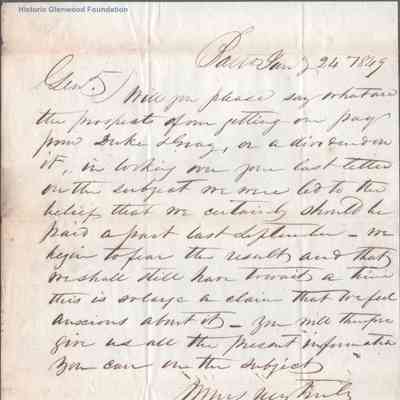 Historic Glenwood Foundation
Balto Jany 24th 1849
Gen.
Will you please say what are
the prospects of our getting our pay
from Duke & Gray, or a dividend on
it, in looking over your last letter
on the subject we were led to the
belief that we certainly should be
paid a part last September - we
begin to fear the result and that
we shall still have to wait a time
this is so large a claim that we feel
anxious about it - You will therefore
give us all the present information
you can on the subject
Yours very truly